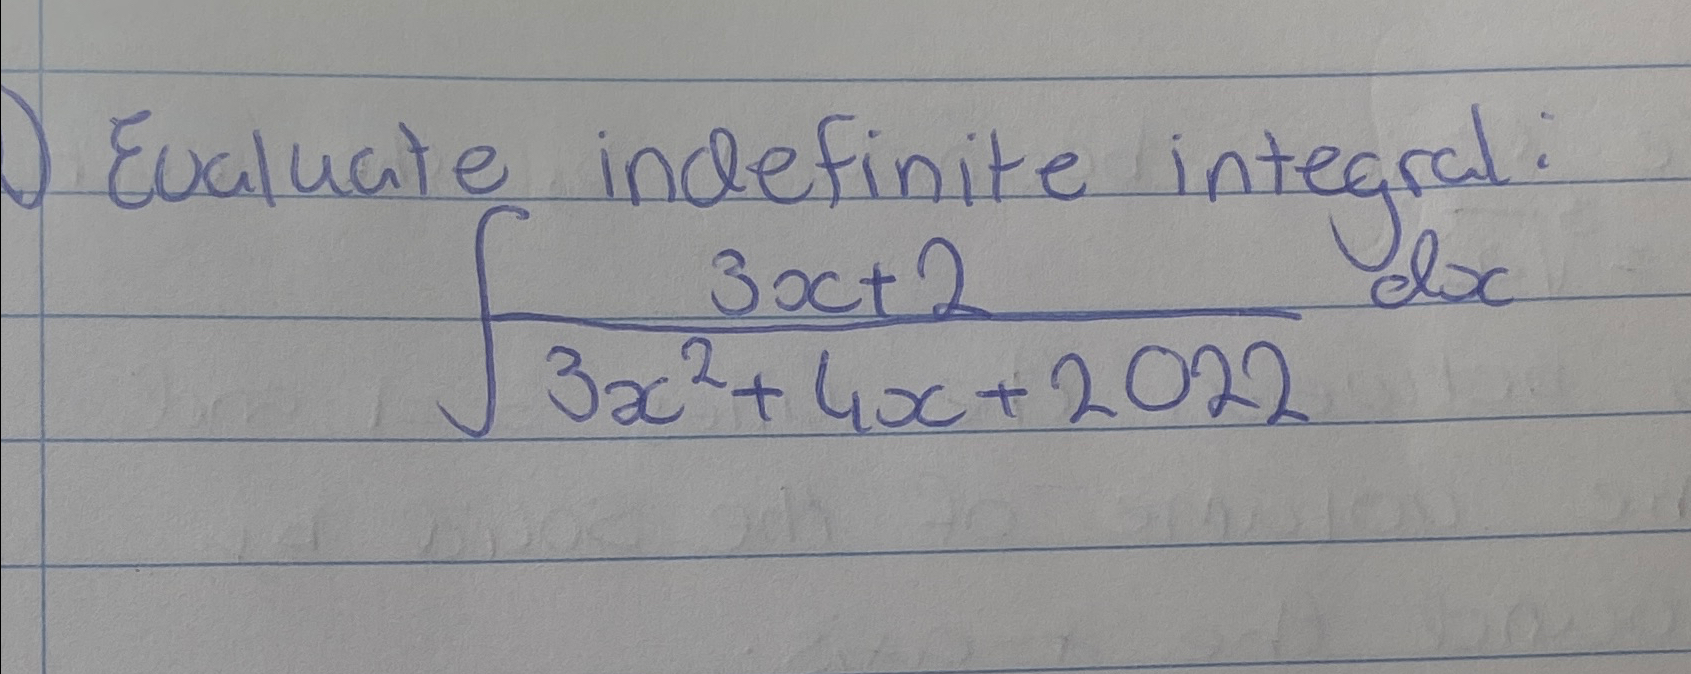 ) Evaluate indefinite integral:
∫ (3x+2)/(3x²+4x+2022) dx